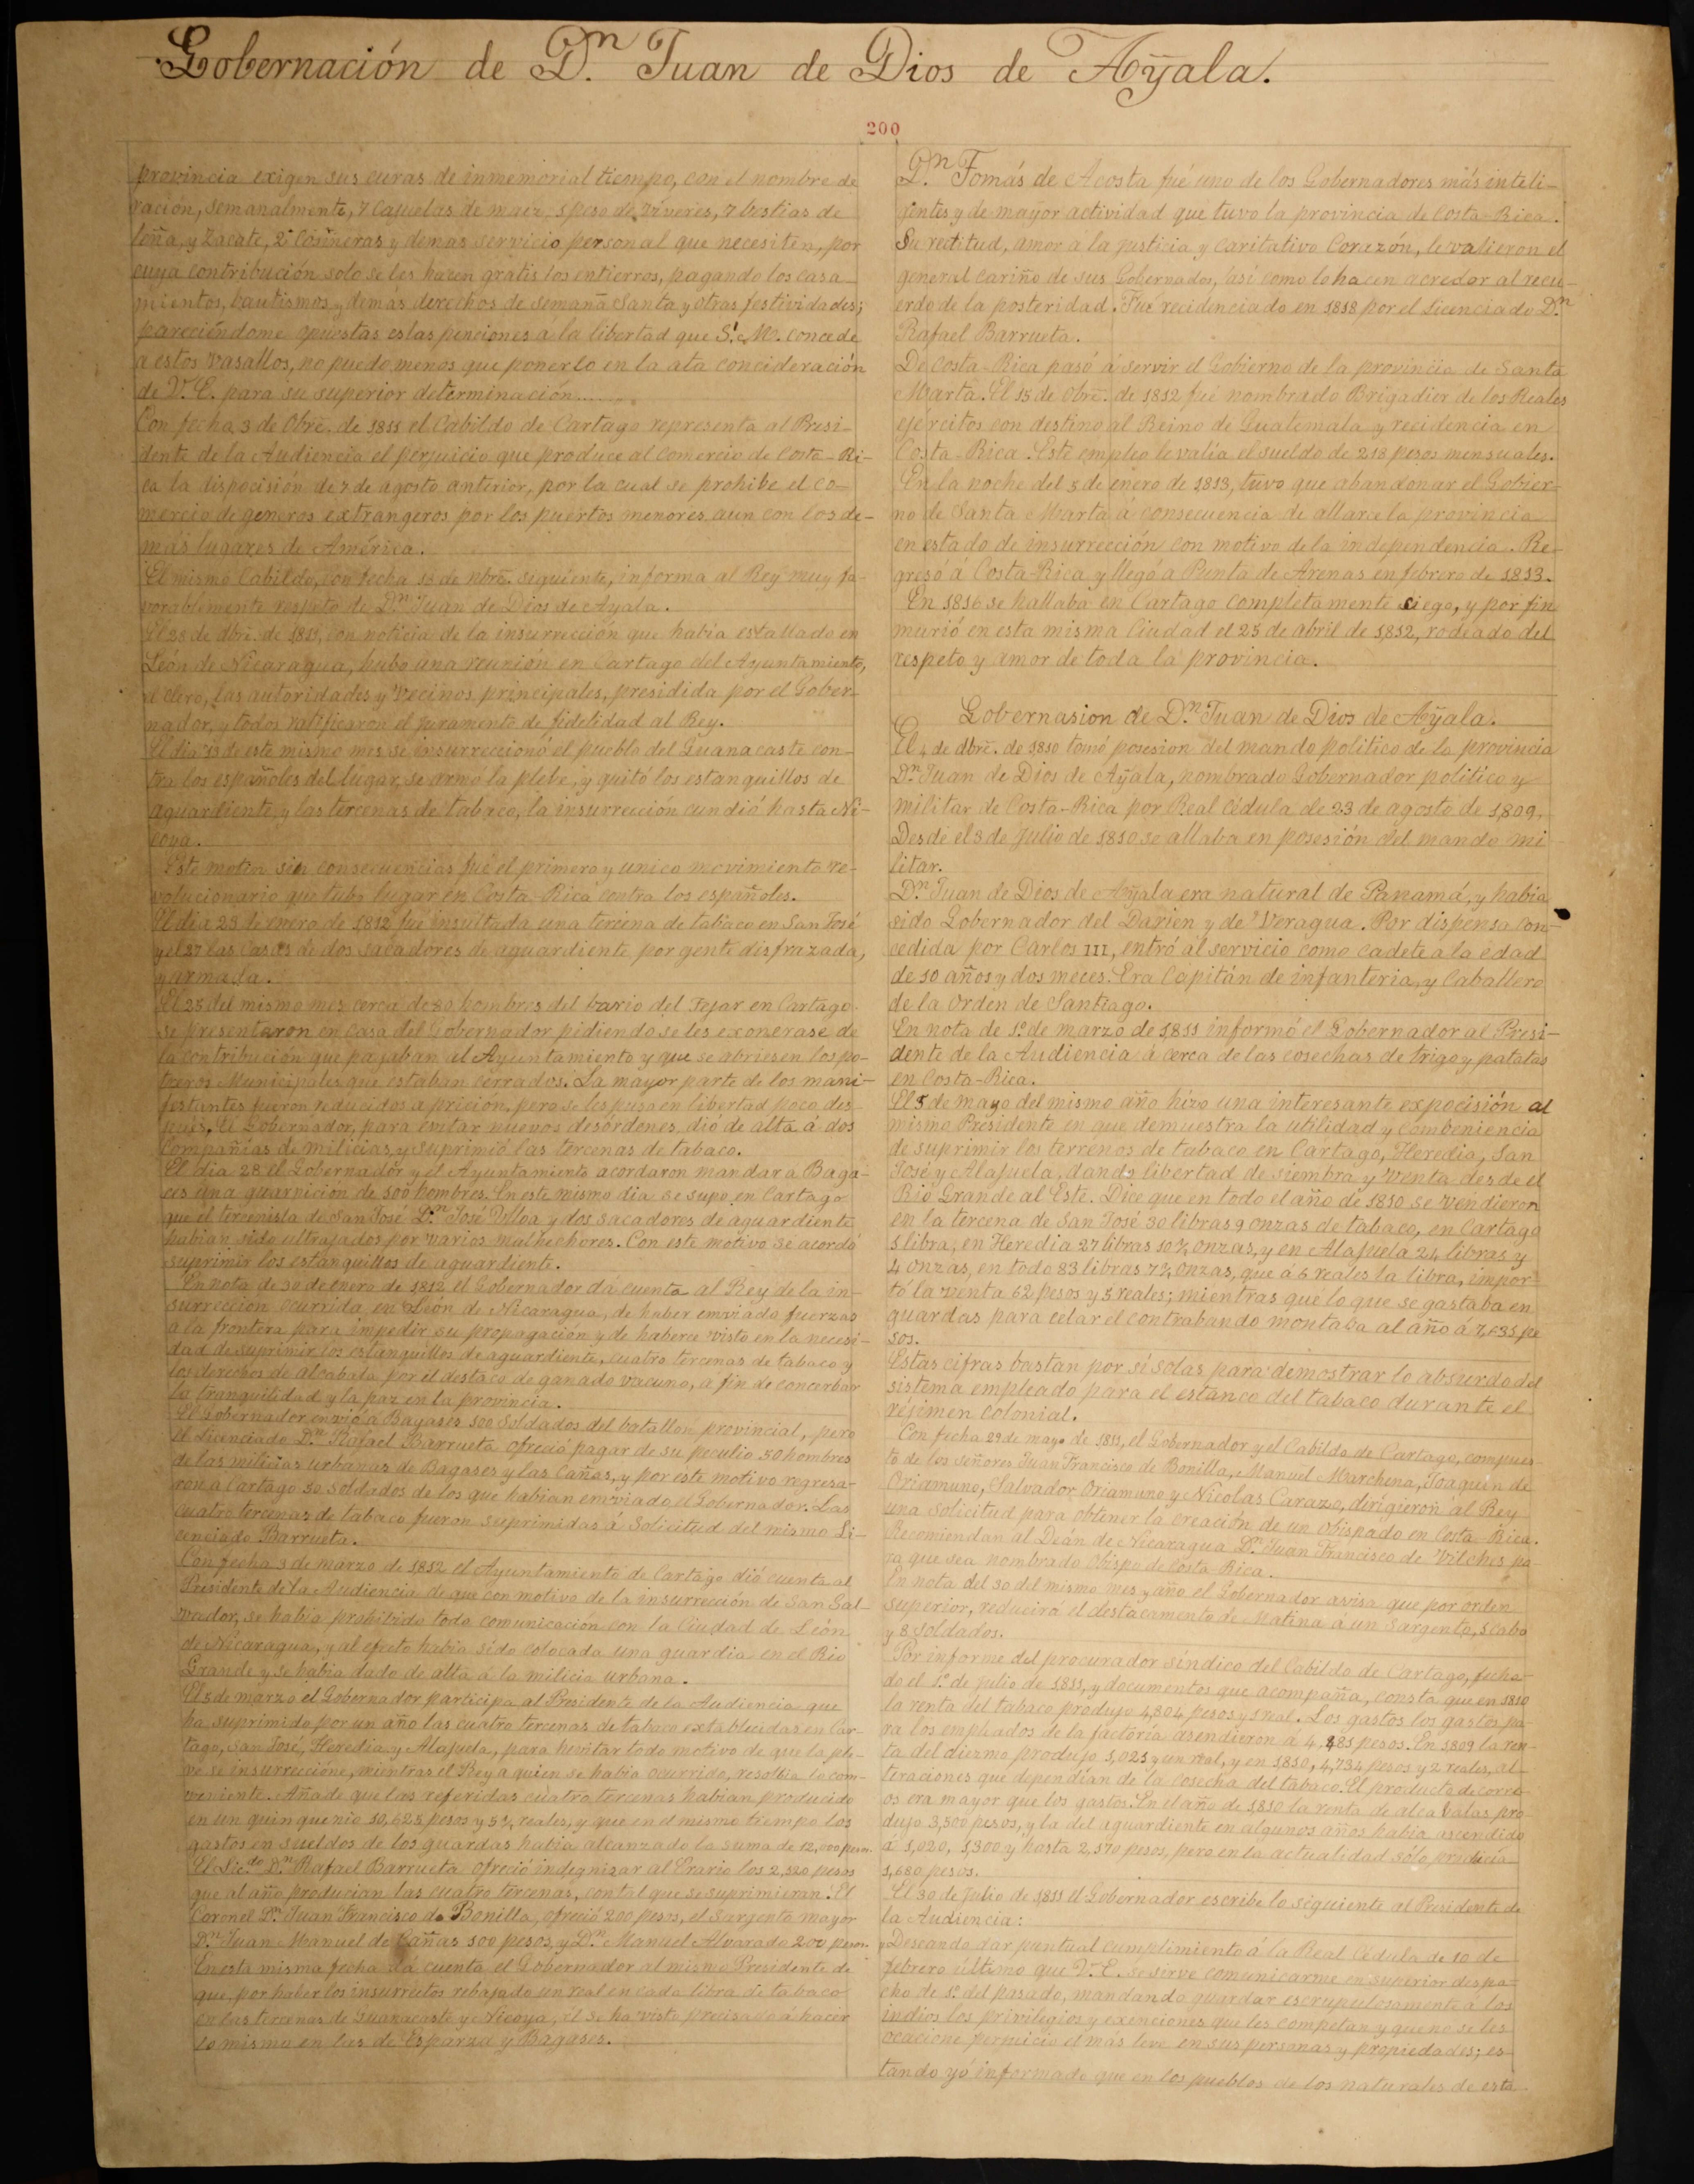 Gobernación de Dn. Juan de Dios de Aÿala.
200
provincia exigen sus curas de inmemorial tiempo, con el nombre de
ración, semanalmente, 7 cajuelas de maiz, 1 peso de viveres, 7 bestias de
leña, y zacate, 2 cosineras y demas servicio personal que necesiten, por
cuya contribución solo se les hacen gratis los entierros, pagando los casa-
mientos, bautismos y demás derechos de semana Santa y otras festividades;
pareciéndome opuestas estas penciones a la libertad que S. M. concede
a estos vasallos, no puedo menos que ponerlo en la ata concideración
de V. E. para su superior determinación.......
Con fecha 3 de Obre. de 1811 el Cabildo de Cartago representa al Presi-
dente de la Audiencia el perjuicio que produce al comercio de Costa-Ri-
ca la disposición de 7 de agosto anterior, por la cual se prohibe el co-
mercio de generos extrangeros por los puertos menores aun con los de-
más lugares de América.
El mismo Cabildo, con fecha 13 de nbre. seguiente, informa al Rey muy fa-
vorablemente respeto de Dn. Juan de Dios de Ayala.
El 28 de dbre. de 1811, con noticia de la insurrección que habia estallado en
León de Nicaragua, hubo una reunión en Cartago del Ayuntamiento,
el clero, las autoridades y vecinos principales, presidida por el Gober-
nador, y todos ratificaron el juramento de fidelidad al Rey.
El dia 13 de este mismo mes se insurreccionó el pueblo del Guanacaste con-
tra los españoles del lugar, se armó la plebe, y quitó los estanquillos de
aguardiente y las tercenas de tabaco, la insurreccion cundió hasta Ni-
coya.
Este motin sin consecuencias fué el primero y unico movimiento re-
volucionario que tubo lugar en Costa-Rica contra los españoles.
El dia 23 de enero de 1812 fue insultada una tercena de tabaco en San José
y el 27 las casas de dos sacadores de aguardiente por gente disfrazada,
y armada.
El 25 del mismo mes cerca de 80 hombres del bario del Tejar en Cartago
se presentaron en casa del Gobernador pidiendo se les exonerase de
la contribución que pajaban al Ayuntamiento y que se abriesen los po-
treros Municipales que estaban cerrados. La mayor parte de los mani-
festantes fueron reducidos a prición, pero se les puso en libertad poco des-
pues. El Gobernador, para evitar nuevos desórdenes, dió de alta á dos
Compañias de milicias, y suprimió las tercenas de tabaco.
El dia 28 el Gobernador y el Ayuntamiento acordaron mandar á Baga-
ces una guarnición de 100 hombres. En este mismo dia se supo en Cartago
que el tercenista de San José Dn. José Ulloa y dos sacadores de aguardiente
habian sido ultrajados por varios malhechores. Con este motivo se acordó
suprimir los estanquillos de aguardiente.
En nota de 30 de enero de 1812 el Gobernador dá cuenta al Rey de la in-
surrección ocurrida en León de Nicaragua, de haber enviado fuerzas
a la frontera para impedir su propagación y de haberce visto en la necesi-
dad de suprimir los estanquillos de aguardiente, cuatro tercenas de tabaco y
los derechos de alcabala por el destaco de ganado vacuno, á fin de concerbar
la tranquilidad y la paz en la provincia.
El Gobernador envió á Bagases 100 soldados del batallon provincial, pero
el Licenciado Dn. Rafael Barrueta ofreció pagar de su peculio 50 hombres
de las milicias urbanas de Bagases y las Cañas, y por este motivo regresa-
ron á Cartago 50 soldados de los que habian enviado el Gobernador. Las
cuatro tercenas de tabaco fueron suprimidas á solicitud del mismo Li-
cenciado Barrueta.
Con fecha 3 de marzo de 1812 el Ayuntamiento de Cartago dió cuenta al
Presidente de la Audiencia de que con motivo de la insurrección de San Sal-
vador, se habia prohibido toda comunicación con la Ciudad de León
de Nicaragua, y al efecto habia sido colocada una guardia en el Rio
Grande y se habia dado de alta á la milicia urbana.
El 5 de marzo el Gobernador participa al Presidente de la Audiencia que
ha suprimido por un año las cuatro tercenas de tabaco establecidas en Car-
tago, San José, Heredia y Alajuela, para hevitar todo motivo de que la ple-
ve se insurreccione, mientras el Rey a quien se habia ocurrido, resolbia lo com-
veniente. Añade que las referidas cuatro tercenas habian producido
en un quinquenio 10,625 pesos y 5¾ reales, y que en el mismo tiempo los
gastos en sueldos de los guardas habia alcanzado la suma de 12,000 pesos.
El Lic.do Dn. Rafael Barrueta ofreció indegnizar al Erario los 2,120 pesos
que al año producian las cuatro tercenas, con tal que se suprimieran. El
Coronel Dn. Juan Francisco de Bonilla, ofreció 200 pesos, el Sargento mayor
Dn. Juan Manuel de Cañas 100 pesos, y Dn. Manuel Alvarado 200 pesos.
En esta misma fecha dá cuenta el Gobernador al mismo Presidente de
que, por haber los insurrectos rebajado un real en cada libra de tabaco
en las tercenas de Guanacaste y Nicoya, él se ha visto precisado á hacer
lo mismo en las de Esparza y Bagases.
Dn. Tomás de Acosta fué uno de los Gobernadores más inteli-
gentes y de mayor actividad que tuvo la provincia de Costa-Rica.
Su rectitud, amor a la justicia y caritativo Corazón, le valieron el
general cariño de sus Gobernados, así como lo hacen acredor al recu-
erdo de la posteridad. Fue recidenciado en 1818 por el Licenciado Dn.
Rafael Barrueta.
De Costa-Rica pasó á servir el Gobierno de la provincia de Santa
Marta. El 15 de Obre. de 1812 fué nombrado Brigadier de los Reales
ejércitos con destino al Reino de Guatemala y recidencia en
Costa-Rica. Este empleo le valía el sueldo de 218 pesos mensuales.
En la noche del 5 de enero de 1813, tuvo que abandonar el Gobier-
no de Santa Marta á consecuencia de allarce la provincia
en estado de insurrección con motivo de la independencia. Re-
gresó á Costa-Rica y llegó a Punta de Arenas en febrero de 1813.
En 1816 se hallaba en Cartago completamente ciego, y por fin
murió en esta misma Ciudad el 25 de abril de 1812, rodeado del
respeto y amor de toda la provincia.
Gobernasion de Dn. Juan de Dios de Aÿala.
El 4 de dbre. de 1810 tomó posesion del mando politico de la provincia
Dn. Juan de Dios de Aÿala, nombrado Gobernador politico y
militar de Costa-Rica por Real cédula de 23 de agosto de 1,809.
Desde el 8 de Julio de 1810 se allaba en posesión del mando mi
litar.
Dn. Juan de Dios de Aÿala era natural de Panamá, y habia
sido Gobernador del Darien y de Veragua. Por dispensa con-
cedida por Carlos III, entró al servicio como cadete a la edad
de 10 años y dos meces. Era Capitán de infanteria, y Caballero
de la Orden de Santiago.
En nota de 1º de marzo de 1,811 informó el Gobernador al Presi-
dente de la Audiencia á cerca de las cosechas de trigo y patatas
en Costa-Rica.
El 5 de mayo del mismo año hizo una interesante expocisión al
mismo Presidente en que demuestra la utilidad y combeniencia
de suprimir los terrenos de tabaco en Cartago, Heredia, San
José y Alajuela, dando libertad de siembra y venta desde el
Rio Grande al Este. Dice que en todo el año de 1810 se vendieron
en la tercena de San José 30 libras 9 onzas de tabaco, en Cartago
1 libra, en Heredia 27 libras 10¾ onzas, y en Alajuela 24 libras y
4 onzas, en todo 83 libras 7¾ onzas, que á 6 reales la libra, impor-
tó la venta 62 pesos y 5 reales; mientras que lo que se gastaba en
guardas para celar el contrabando montaba al año á 7,035 pe
sos.
Estas cifras bastan por sí solas para demostrar lo absurdo del
sistema empleado para el estanco del tabaco durante el
résimen colonial.
Con fecha 29 de mayo de 1811, el Gobernador y el Cabildo de Cartago, compues-
to de los señores Juan Francisco de Bonilla, Manuel Marchena, Joaquin de
Oriamuno, Salvador Oriamuno y Nicolas Carazo, dirigieron al Rey
una solicitud para obtener la creación de un obispado en Costa Rica.
Recomiendan al Deán de Nicaragua Dn. Juan Francisco de Vilches pa-
ra que sea nombrado Obispo de Costa Rica.
En nota del 30 del mismo mes y año el Gobernador avisa que por orden
superior, reducirá el destacamento de Matina á un Sargento, 1 cabo
y 8 soldados.
Por informe del procurador síndico del Cabildo de Cartago, fecha-
do el 1º de julio de 1,811, y documentos que acompaña, consta que en 1810
la renta del tabaco produjo 4,804 pesos y 1 real. Los gastos los gastos pa-
ra los empleados de la factoría asendieron á 4,181 pesos. En 1809 la ren-
ta del diezmo produjo 1,021 y un real, y en 1,810, 4,734 pesos y 2 reales, al-
teraciones que dependian de la cosecha del tabaco. El producto de corre-
os era mayor que los gastos. En el año de 1,810 la renta de alcabalas pro-
dujo 3,500 pesos, y la del aguardiente en algunos años habia ascendido
á 1,020, 1,300 y hasta 2,170 pesos, pero en la actualidad sólo producía
1,680 pesos.
El 30 de julio de 1,811 el Gobernador escribe lo siguiente al Presidente de
la Audiencia:
„Deseando dar puntual cumplimiento á la Real Cédula de 10 de
febrero último que V. E. se sirve comunicarme en superior despa-
cho de 1º del pasado, mandando guardar escrupulosamente á los
indios los privilegios y exenciones que les competan y que no se les
ocacione perjuicio el más leve en sus personas y propiedades; es-
tando yó informado que en los pueblos de los naturales de esta